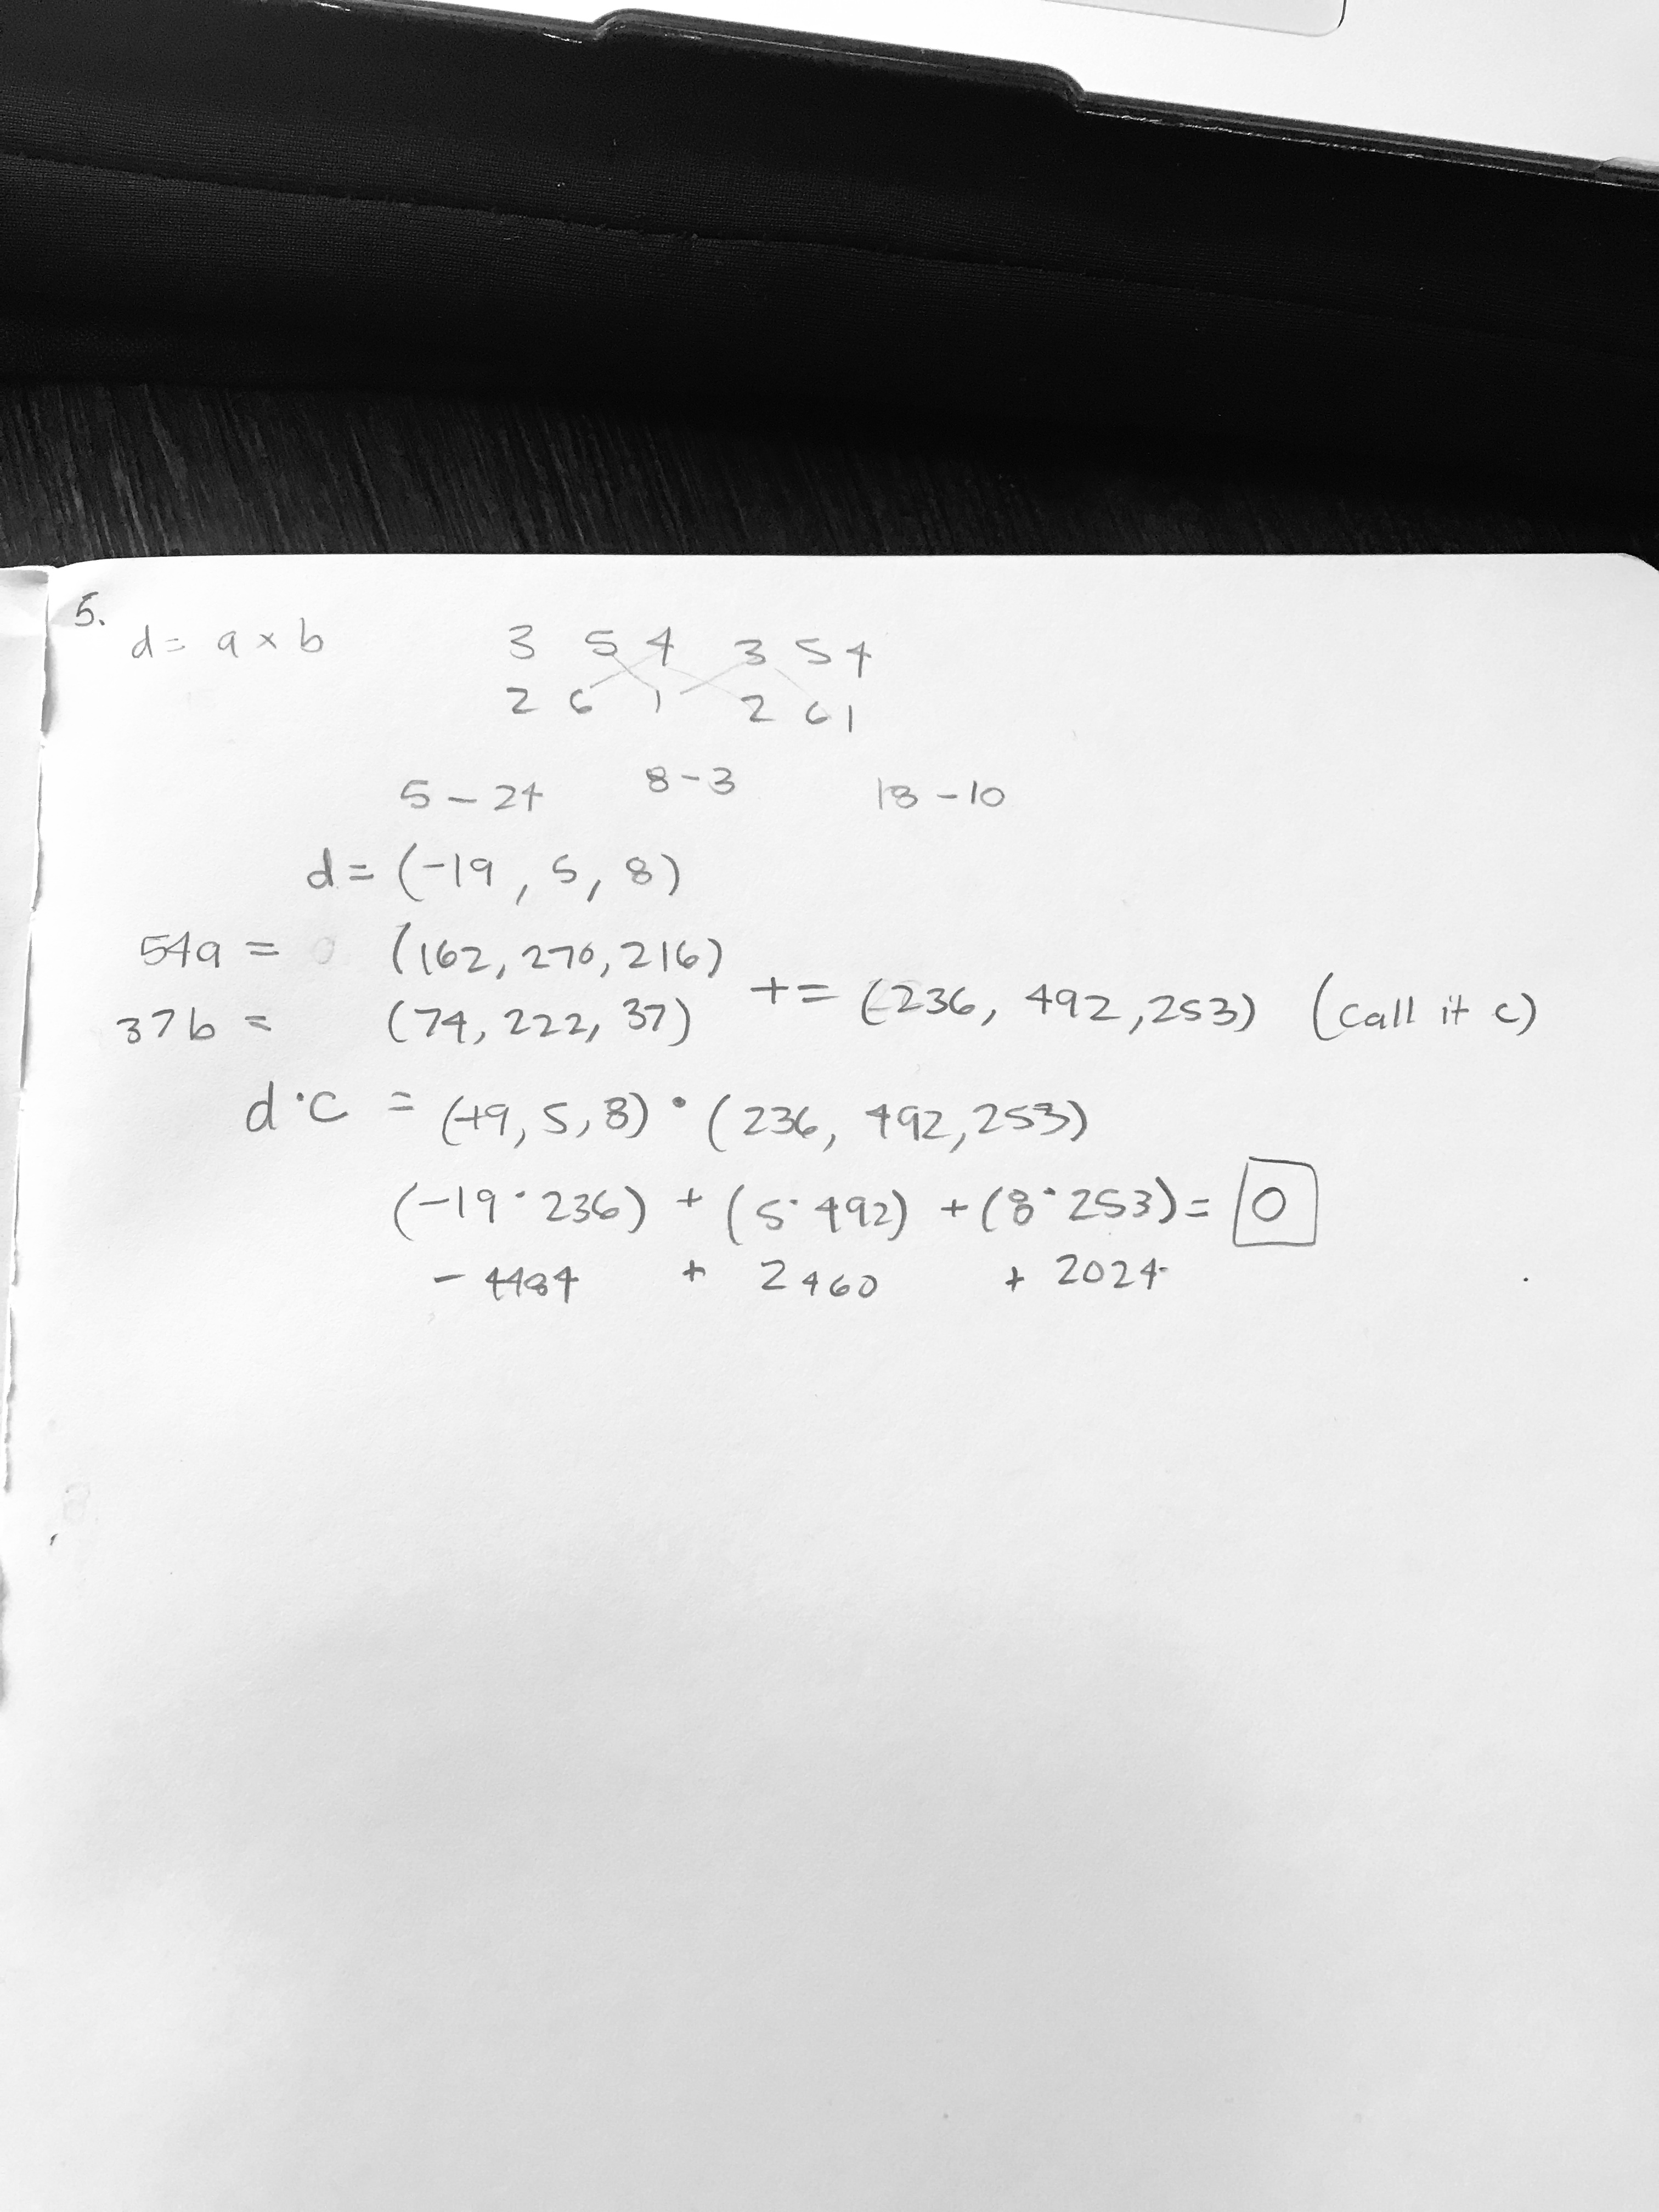 5.
d = a × b
3 5 4 3 5 4
2 6 1 2 6 1
5 - 24 8 - 3 18 - 10
d = (-19, 5, 8)
54a = (162, 270, 216)
37b = (74, 222, 37)
+ = (236, 492, 253) (call it c)
d · c = (-19, 5, 8) · (236, 492, 253)
(-19 · 236) + (5 · 492) + (8 · 253) = 0
- 4484 + 2460 + 2024